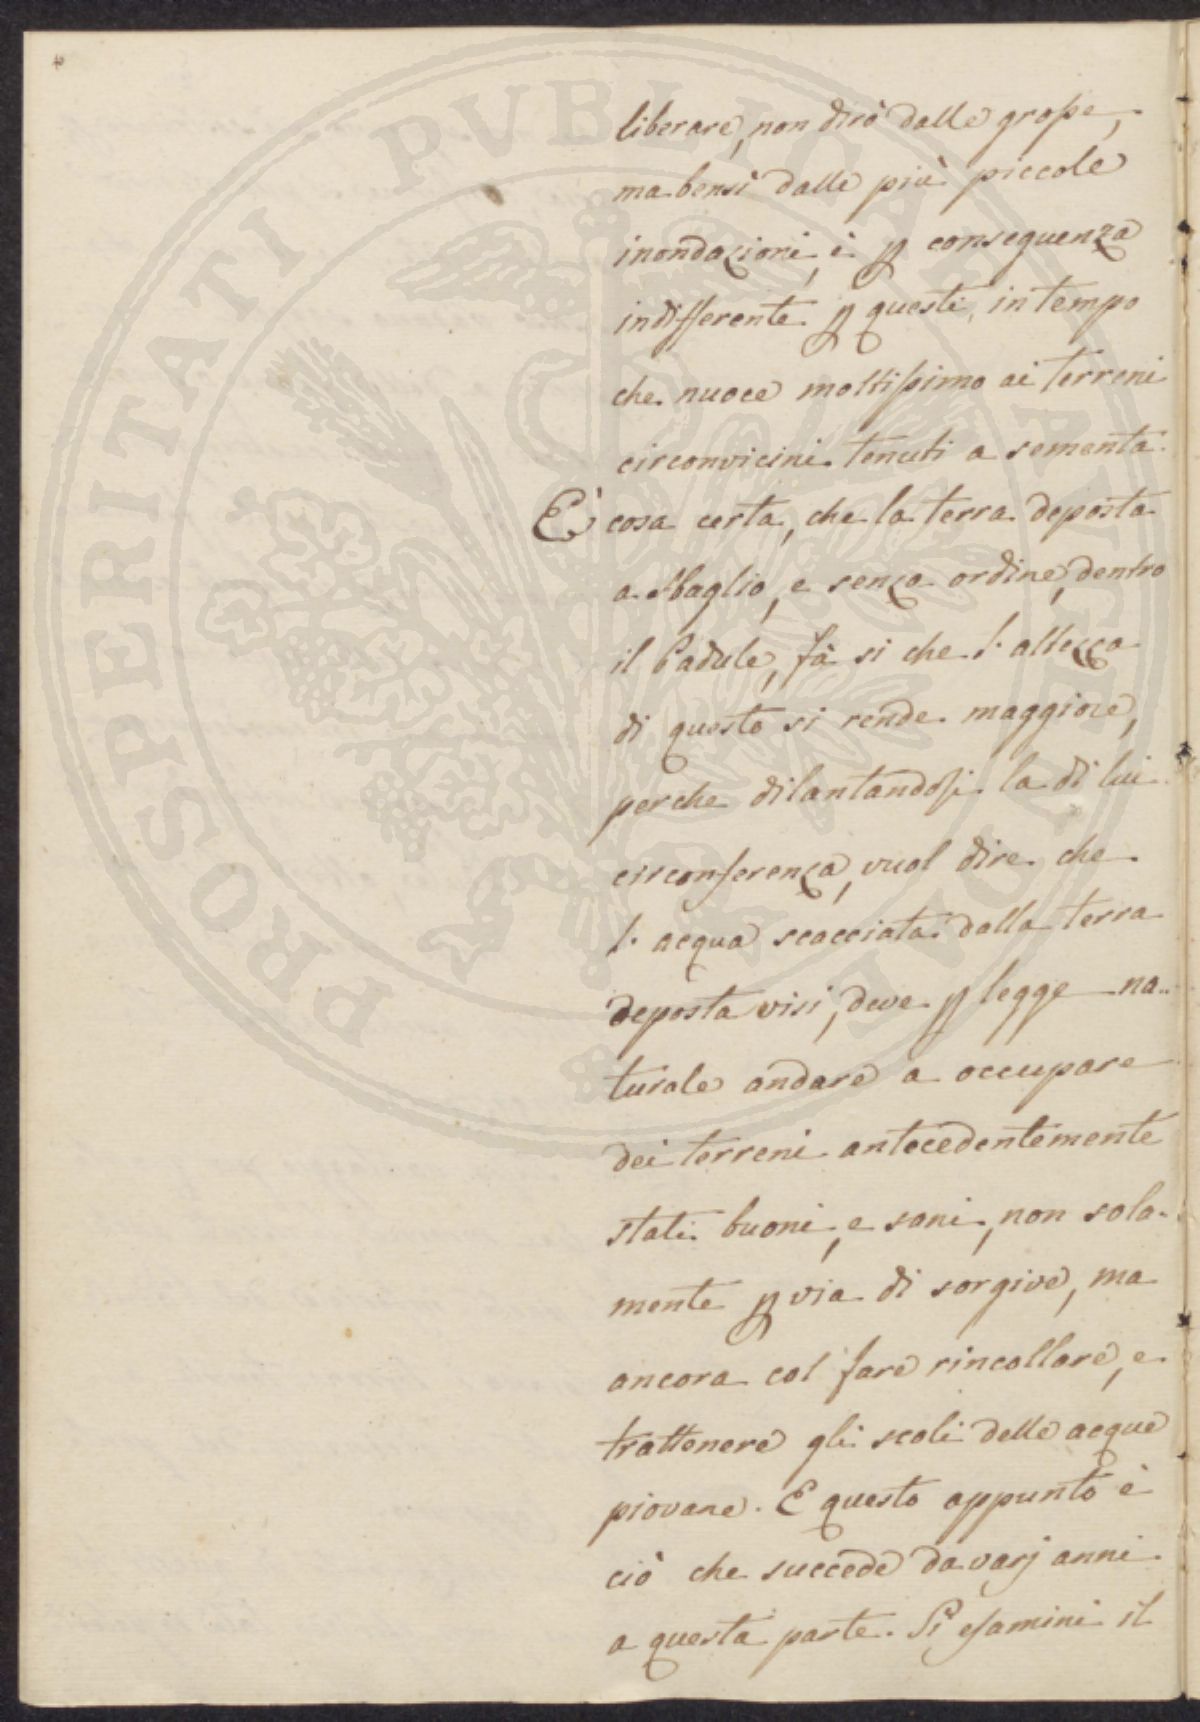 liberare, non dirò dalle grosse,
ma bensì dalle più piccole
inondazioni, è p conseguenza
indifferente p questi, in tempo
che nuoce moltissimo ai terreni
circonvicini tenuti a sementa.
È cosa certa, che la terra deposta
a sbaglio, e senza ordine, dentro
il Padule, fà si che l'altezza
di questo si rende maggiore,
perche dilantandosi la di lui
circonferenza, vuol dire che
l'acqua scacciata dalla terra
deposta visi, deve p legge na..
turale andare a occupare
dei terreni antecedentemente
stati buoni, e sani, non sola-
mente p via di sorgive, ma
ancora col fare rincollare, e
trattenere gli scoli delle acque
piovane. E questo appunto è
ciò che succede da varj anni
a questa parte. Si esamini il
PROSPERITATI PVBLICAE AVGENDAE